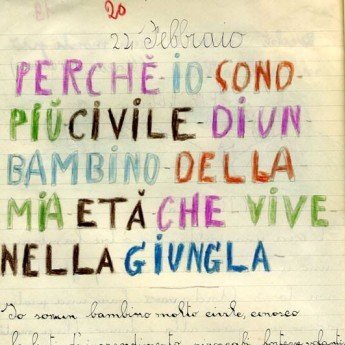 20
22 Febbraio
PERCHÈ IO SONO
PIÚ CIVILE DI UN
BAMBINO DELLA
MIA ETÀ CHE VIVE
NELLA GIUNGLA
Io sono un bambino molto civile, conosco